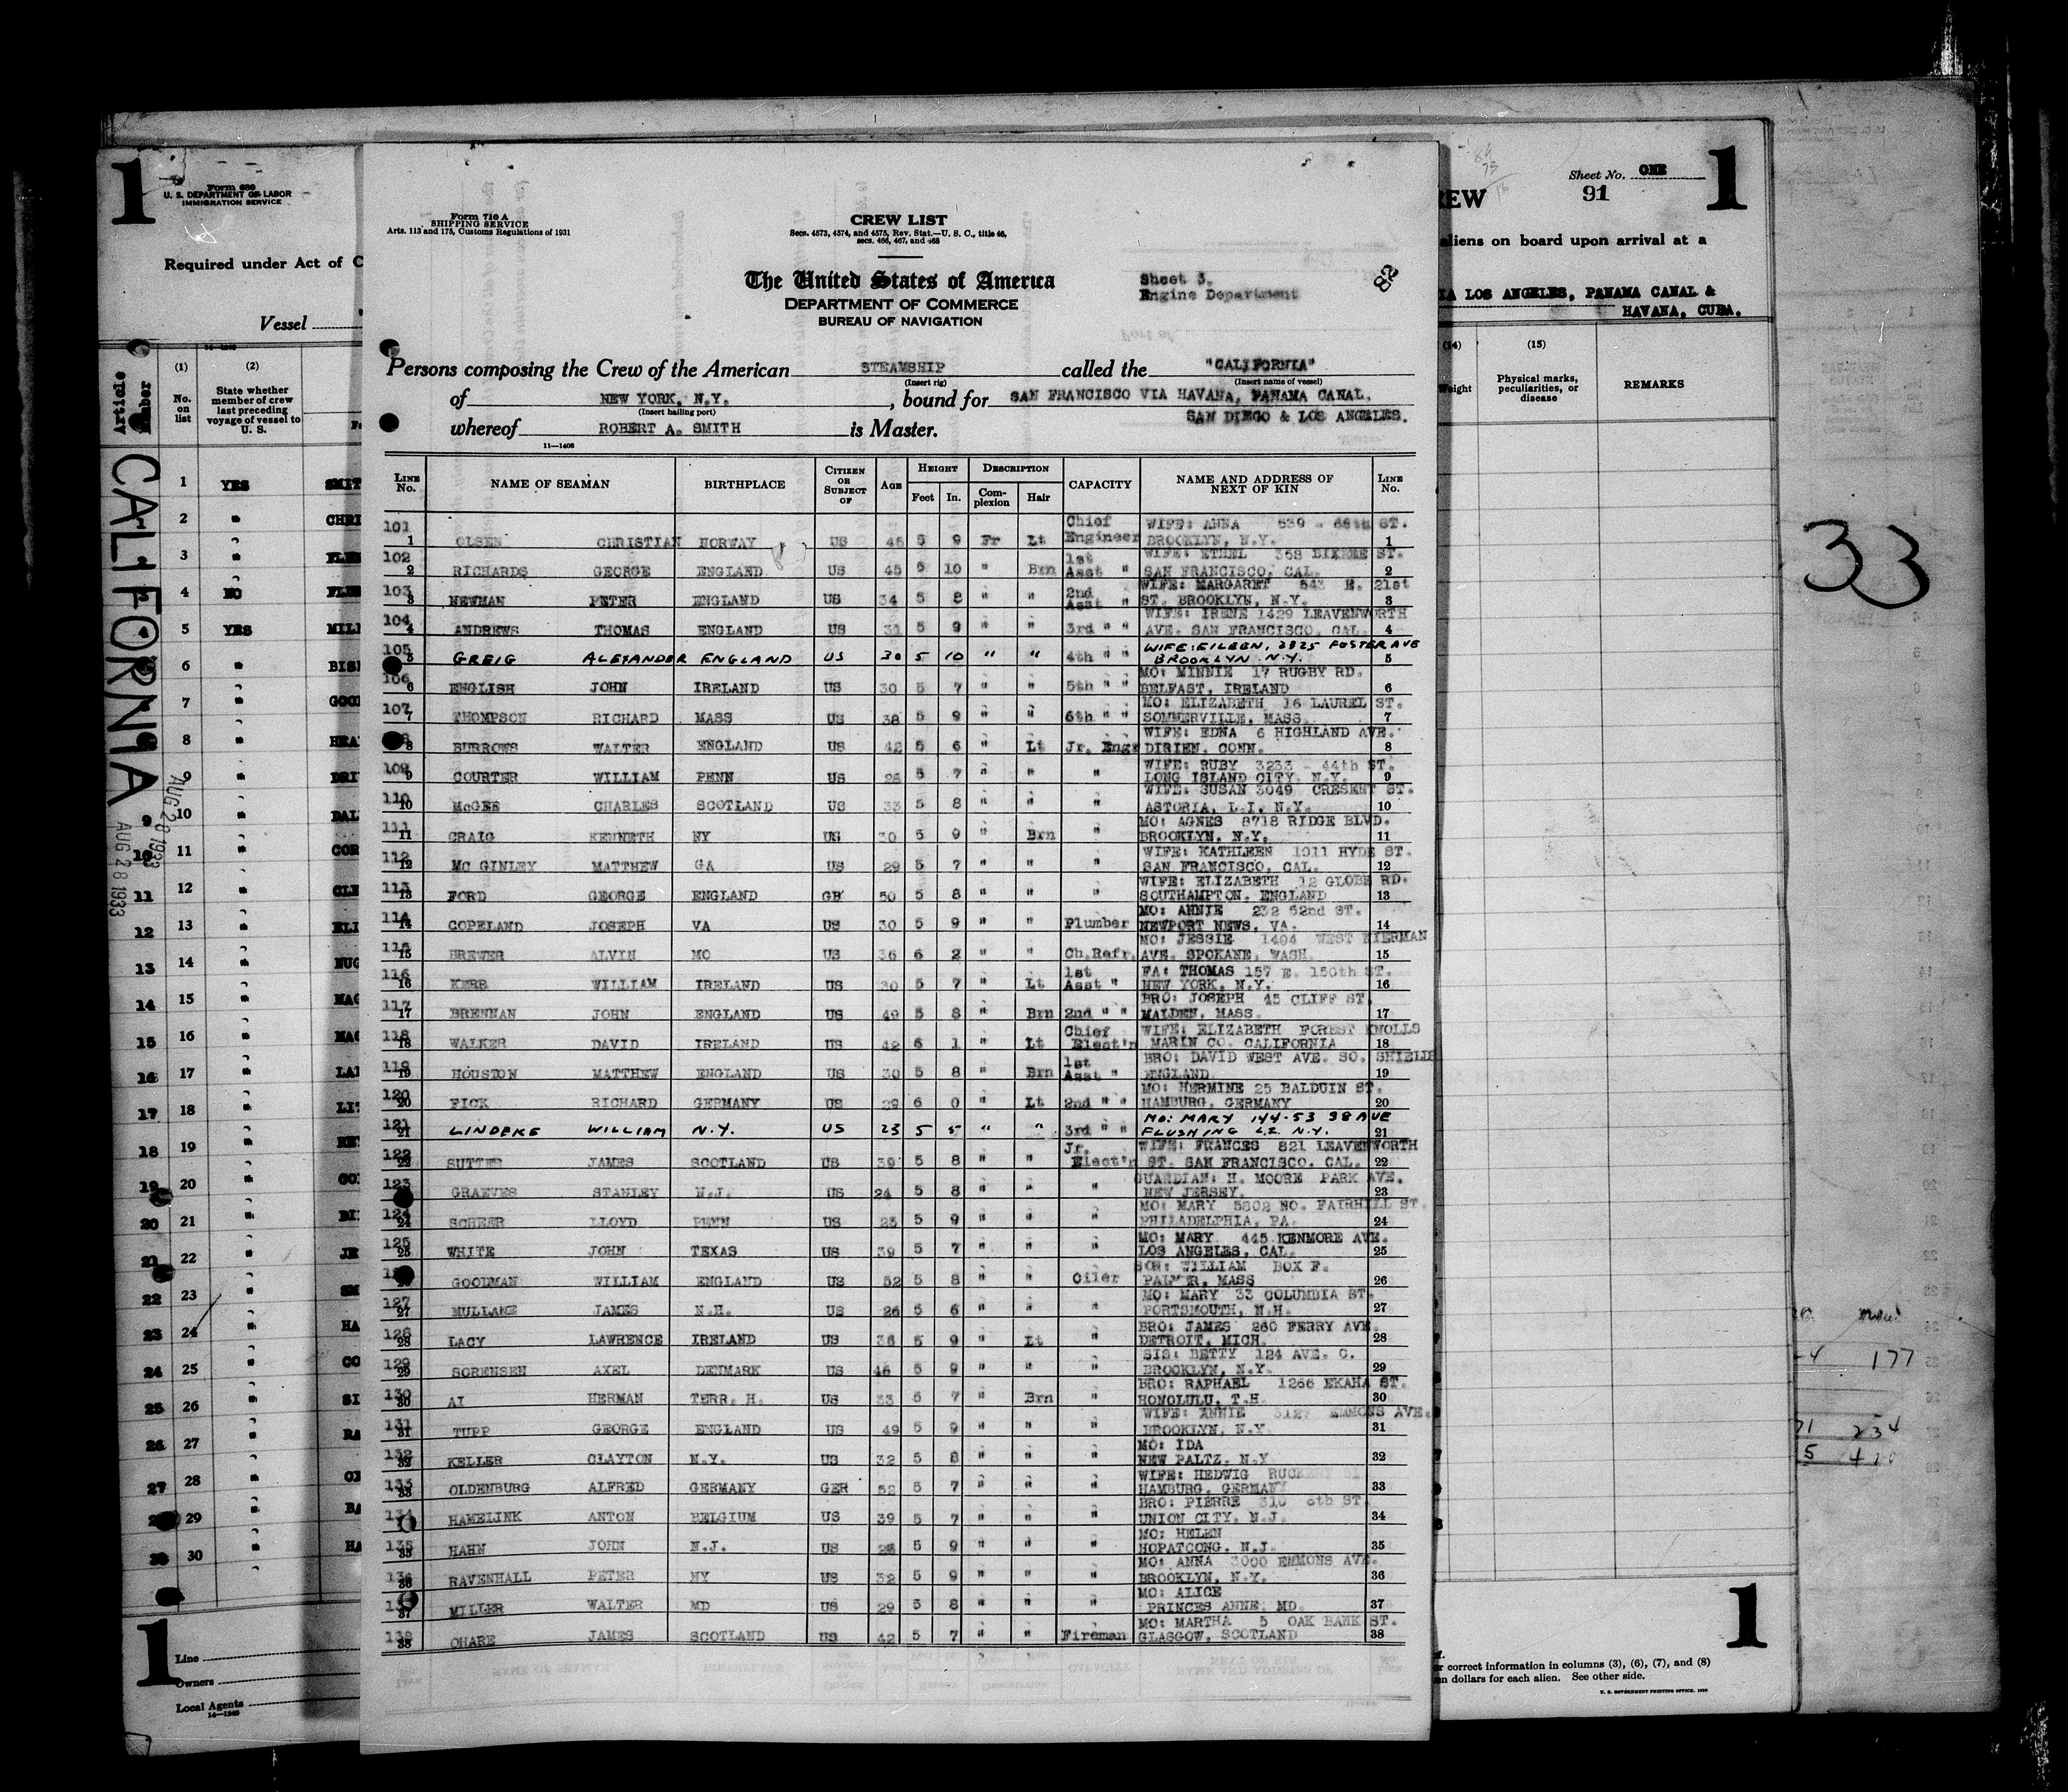 1
Form 680
U. S. DEPARTMENT OF LABOR
IMMIGRATION SERVICE
Required under Act of C
Vessel
Article
Number
(1) (2)
No. on list
State whether member of crew last preceding voyage of vessel to U. S.
CALIFORNIA
AUG 28 1933
AUG 28 1933
1 YES SMIT
2 " CHRI
3 " FLE
4 NO FL
5 YES MILL
6 " BIS
7 " GOO
8 " HEA
9 " DRI
10 " DAL
11 " COR
12 " CLE
13 " ELI
14 " HUG
15 " MAC
16 " MAC
17 " LA
18 " LI
19 "
20 " CO
21 "
22 " JE
23 " SM
24 " HA
25 " CO
26 " SI
27 " RA
28 "
29 " BA
30 " HA
1
Line
Owners
Local Agents
14—1240
Form 710 A
SHIPPING SERVICE
Arts. 113 and 175, Customs Regulations of 1931
CREW LIST
Secs. 4573, 4574, and 4575, Rev. Stat.—U. S. C., title 46,
secs. 466, 467, and 468
The United States of America
DEPARTMENT OF COMMERCE
BUREAU OF NAVIGATION
Sheet 3.
Engine Department
82
Persons composing the Crew of the American STEAMSHIP called the "CALIFORNIA"
(Insert rig) (Insert name of vessel)
of NEW YORK, N.Y. , bound for SAN FRANCISCO VIA HAVANA, PANAMA CANAL,
(Insert hailing port) SAN DIEGO & LOS ANGELES.
whereof ROBERT A. SMITH is Master.
11—1408
LINE No. NAME OF SEAMAN BIRTHPLACE CITIZEN OR SUBJECT OF AGE HEIGHT Feet In. DESCRIPTION Complexion Hair CAPACITY NAME AND ADDRESS OF NEXT OF KIN LINE No.
101 Chief WIFE: ANNA 539 - 68th ST.
1 OLSEN CHRISTIAN NORWAY US 46 5 9 Fr Lt Engineer BROOKLYN, N.Y. 1
102 1st WIFE: ETHEL 368 ST.
2 RICHARDS GEORGE ENGLAND US 45 5 10 " Brn Asst " SAN FRANCISCO, CAL. 2
103 2nd WIFE: MARGARET 543 E. 21st
3 NEWMAN PETER ENGLAND US 34 5 8 " " Asst " ST. BROOKLYN, N.Y. 3
104 WIFE: IRENE 1429 LEAVENWORTH
4 ANDREWS THOMAS ENGLAND US 31 5 9 " " 3rd " " AVE. SAN FRANCISCO, CAL. 4
105 WIFE: EILEEN, 2325 FOSTER AVE
5 GREIG ALEXANDER ENGLAND US 30 5 10 " " 4th " " BROOKLYN N.Y. 5
106 MO: MINNIE 17 RUGBY RD.
6 ENGLISH JOHN IRELAND US 30 5 7 " " 5th " " BELFAST, IRELAND 6
107 MO: ELIZABETH 16 LAUREL ST.
7 THOMPSON RICHARD MASS US 38 5 9 " " 6th " " SOMMERVILLE, MASS. 7
WIFE: EDNA 6 HIGHLAND AVE.
8 BURROWS WALTER ENGLAND US 42 5 6 " Lt Jr. Engr DIRIEN, CONN. 8
109 WIFE: RUBY 3233 - 44th ST.
9 COURTER WILLIAM PENN US 28 5 7 " " " LONG ISLAND CITY, N.Y. 9
110 WIFE: SUSAN 3049 CRESENT ST.
10 McGEE CHARLES SCOTLAND US 33 5 8 " " " ASTORIA, L.I. N.Y. 10
111 MO: AGNES 8718 RIDGE BLVD.
11 CRAIG KENNETH NY US 30 5 9 " Brn " BROOKLYN, N.Y. 11
112 WIFE: KATHLEEN 1011 HYDE ST.
12 MC GINLEY MATTHEW GA US 29 5 7 " " " SAN FRANCISCO, CAL. 12
113 WIFE: ELIZABETH 12 GLOBE RD.
13 FORD GEORGE ENGLAND GB 50 5 8 " " " SOUTHAMPTON, ENGLAND 13
114 MO: ANNIE 232 52nd ST.
14 COPELAND JOSEPH VA US 30 5 9 " " Plumber NEWPORT NEWS, VA. 14
115 MO: JESSIE 1404 WEST KIERMAN
15 BREWER ALVIN MO US 36 6 2 " " Ch.Refr. AVE. SPOKANE, WASH. 15
116 1st FA: THOMAS 157 E. 150th ST.
16 KERR WILLIAM IRELAND US 30 5 7 " Lt Asst " NEW YORK, N.Y. 16
117 BRO: JOSEPH 45 CLIFF ST.
17 BRENNAN JOHN ENGLAND US 49 5 8 " Brn 2nd " " MALDEN, MASS. 17
118 Chief WIFE: ELIZABETH FOREST KNOLLS
18 WALKER DAVID IRELAND US 42 6 1 " Lt Elect'n MARIN CO. CALIFORNIA 18
119 1st BRO: DAVID WEST AVE. SO. SHIELD
19 HOUSTON MATTHEW ENGLAND US 30 5 8 " Brn Asst " ENGLAND 19
120 MO: HERMINE 25 BALDUIN ST.
20 FICK RICHARD GERMANY US 29 6 0 " Lt 2nd " " HAMBURG, GERMANY 20
121 MO: MARY 144-53 38 AVE
21 LINDEKE WILLIAM N.Y. US 23 5 5 " " 3rd " " FLUSHING L.I. N.Y. 21
122 Jr. WIFE: FRANCES 821 LEAVENWORTH
22 SUTTER JAMES SCOTLAND US 39 5 8 " " Elect'n ST. SAN FRANCISCO, CAL. 22
123 GUARDIAN: H. MOORE PARK AVE.
GRAEVES STANLEY N.J. US 24 5 8 " " " NEW JERSEY. 23
124 MO: MARY 5802 NO. FAIRHILL ST.
24 SCHEER LLOYD PENN US 25 5 9 " " " PHILADELPHIA, PA. 24
125 MO: MARY 445 KENMORE AVE.
25 WHITE JOHN TEXAS US 39 5 7 " " " LOS ANGELES, CAL. 25
SON: WILLIAM BOX F.
GOODMAN WILLIAM ENGLAND US 52 5 8 " " Oiler PALMER, MASS 26
127 MO: MARY 33 COLUMBIA ST.
27 MULLANE JAMES N.H. US 26 5 6 " " " PORTSMOUTH, N.H. 27
128 BRO: JAMES 260 FERRY AVE.
28 LACY LAWRENCE IRELAND US 36 5 9 " Lt " DETROIT, MICH. 28
129 SIS: BETTY 124 AVE. C.
29 SORENSEN AXEL DENMARK US 46 5 9 " " " BROOKLYN, N.Y. 29
130 BRO: RAPHAEL 1266 EKAHA ST.
30 AI HERMAN TERR. H. US 33 5 7 " Brn " HONOLULU, T.H. 30
131 WIFE: ANNIE 3127 EMMONS AVE.
31 TUPP GEORGE ENGLAND US 49 5 9 " " " BROOKLYN, N.Y 31
132 MO: IDA
32 KELLER CLAYTON N.Y. US 32 5 8 " " " NEW PALTZ, N.Y 32
133 WIFE: HEDWIG
33 OLDENBURG ALFRED GERMANY GER 52 5 7 " " " HAMBURG, GERMANY 33
134 BRO: PIERRE 310 8th ST.
HAMELINK ANTON BELGIUM US 39 5 7 " " " UNION CITY, N.J. 34
135 MO: HELEN
35 HAHN JOHN N.J. US 28 5 9 " " " HOPATCONG, N.J. 35
136 MO: ANNA 3000 EMMONS AVE.
36 RAVENHALL PETER NY US 32 5 9 " " " BROOKLYN, N.Y. 36
MO: ALICE
37 MILLER WALTER MD US 29 5 8 " " " PRINCES ANNE, MD. 37
138 MO: MARTHA 5 OAK BANK ST.
38 OHARE JAMES SCOTLAND US 42 5 7 " " Fireman GLASGOW, SCOTLAND 38
Sheet No. ONE
1
REW
91
aliens on board upon arrival at a
IA LOS ANGELES, PANAMA CANAL &
HAVANA, CUBA.
(14) (15)
Weight
Physical marks, peculiarities, or disease
REMARKS
33
177
234
1
r correct information in columns (3), (6), (7), and (8)
n dollars for each alien. See other side.
U. S. GOVERNMENT PRINTING OFFICE